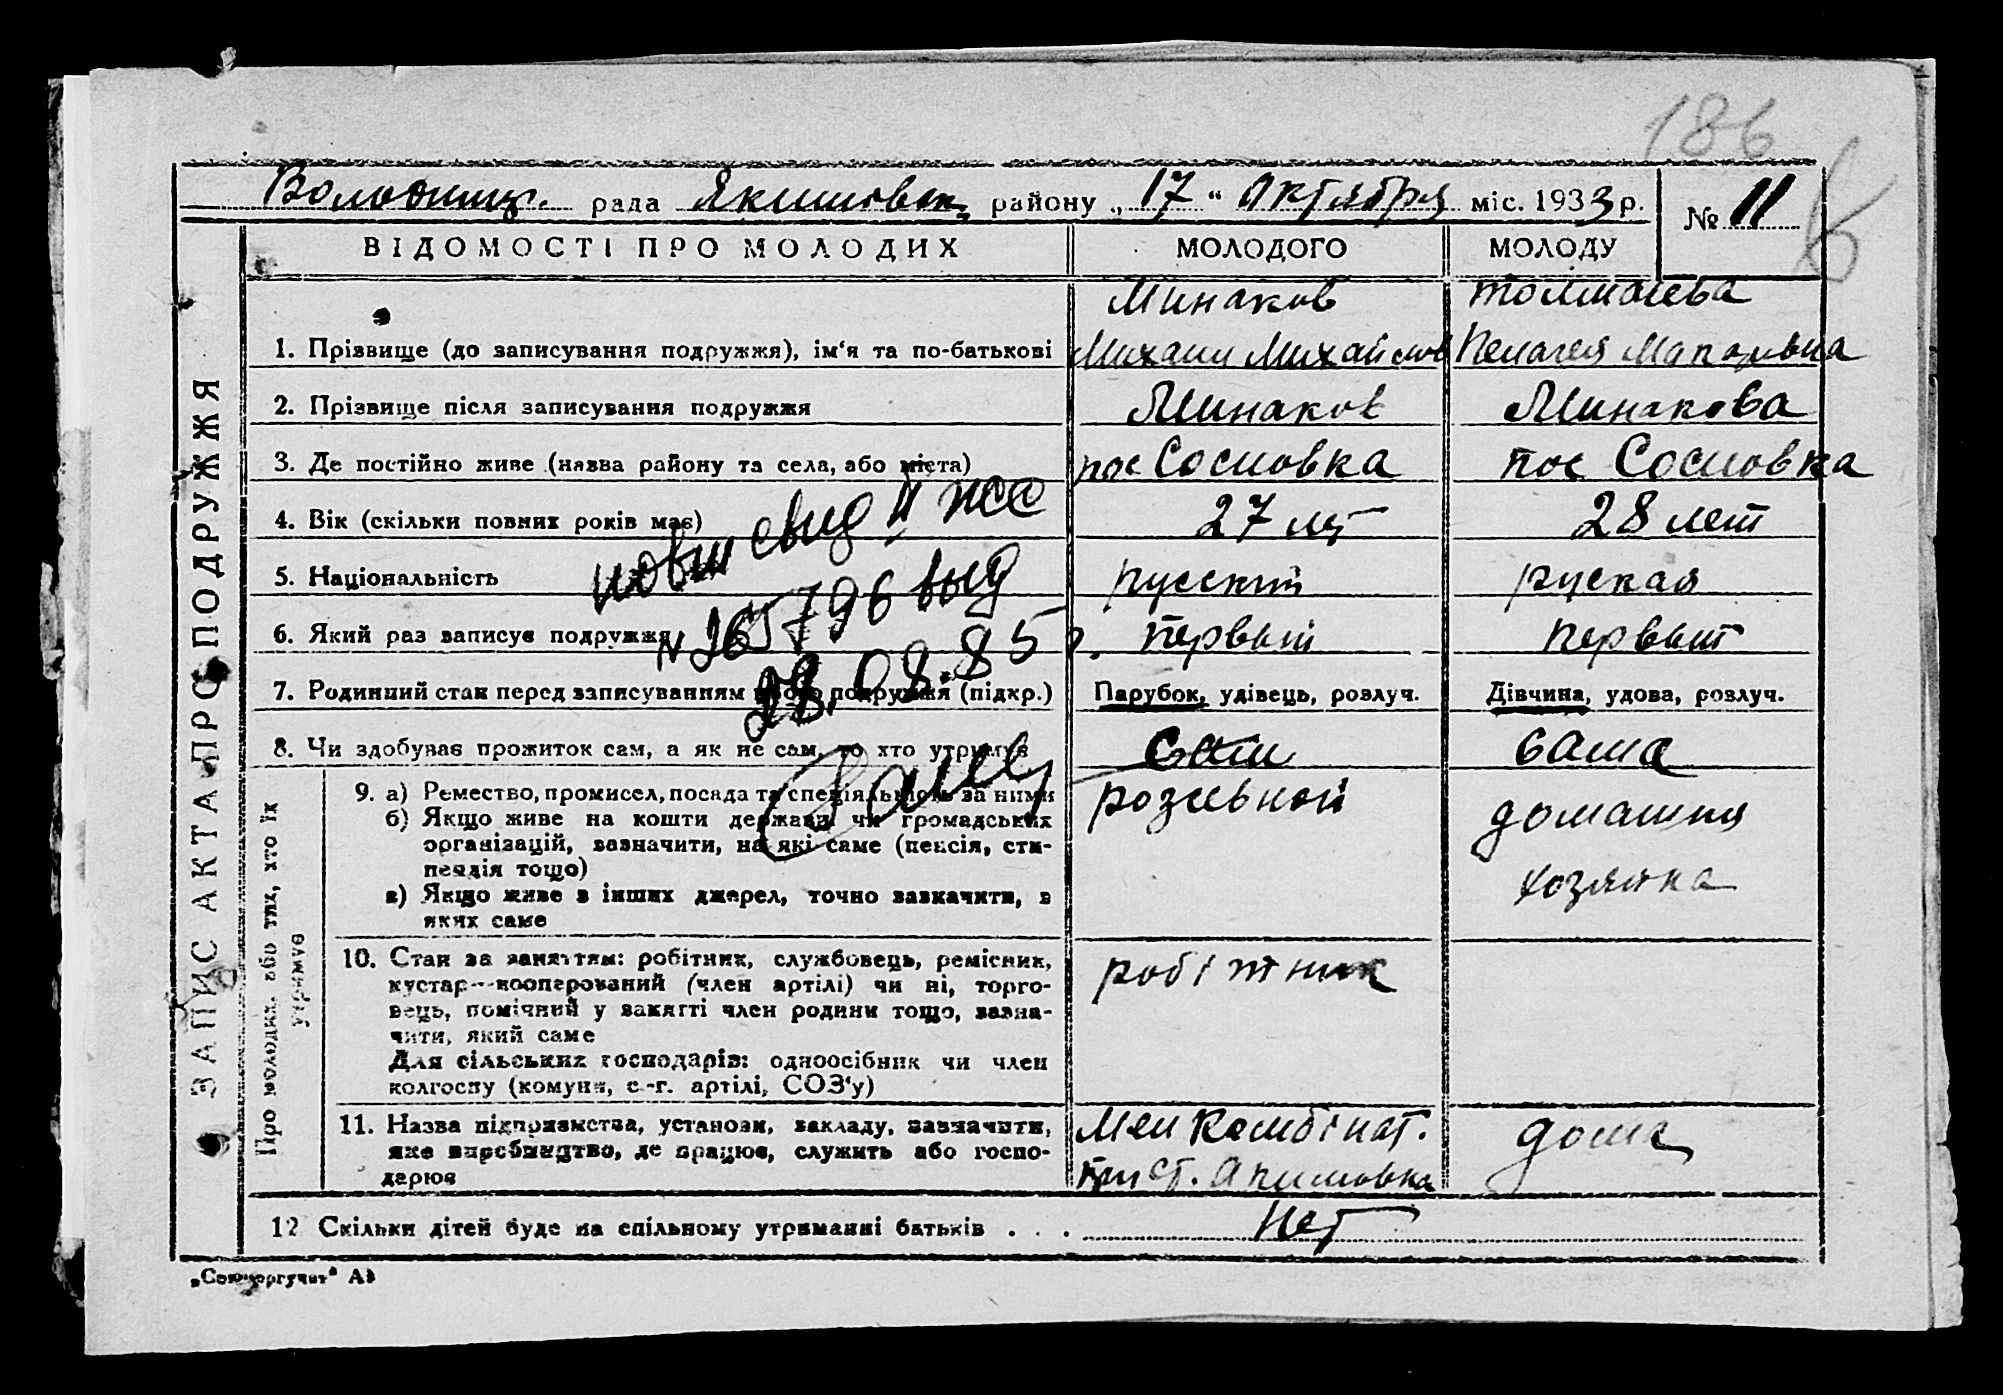 186
Володимир. рада Якимовск. району „ 17 “ Октября міс. 1933 р. № 11
ВІДОМОСТІ ПРО МОЛОДИХ МОЛОДОГО МОЛОДУ
1. Прізвище (до записування подружжя), ім‘я та по-батькові
Минаков
Михаил Михайлов
Толмачева
Пелагея Макаровна
2. Прізвище після записування подружжя Минаков Минакова
3. Де постійно живе (назва району та села, або міста) пос Сосновка пос Сосновка
4. Вік (скільки повних років має) 27 лт 28 лет
5. Національність русский руская
6. Який раз записує подружжя первый первый
7. Родинний стан перед записуванням цього подружжя (підкр.) Парубок, удівець, розлуч. Дівчина, удова, розлуч.
8. Чи здобуває прожиток сам, а як не сам, то хто утримує сам сама
ЗАПИС АКТА ПРО ПОДРУЖЖЯ
Про молодих, або тих, хто їх
утримує
9. а) Ремество, промисел, посада та спеціяльність за ними
б) Якщо живе на кошти держави чи громадських
організацій, зазначити, на які саме (пенсія, сти-
пендія тощо)
в) Якщо живе з інших джерел, точно зазначити, з
яких саме
домашня
хозяйка
10. Стан за заняттям: робітник, службовець, ремісник,
кустар—кооперований (член артілі) чи ні, торго-
вець, помічний у занятті член родини тощо, зазна-
чити, який саме
Для сільських господарів: одноосібник чи член
колгоспу (комуни, с.-г. артілі, СОЗ‘у)
робітник
11. Назва підприємства, установи, закладу, зазначити,
яке виробництво, де працює, служить або госпо-
дарює
Мел Комбінат.
при ст. Акимовка
дома
12 Скільки дітей буде на спільному утриманні батьків . . . Нет
свид II ЖС
№ 265796 выд
28.08.85 г.
„Союзоргучет“ А3